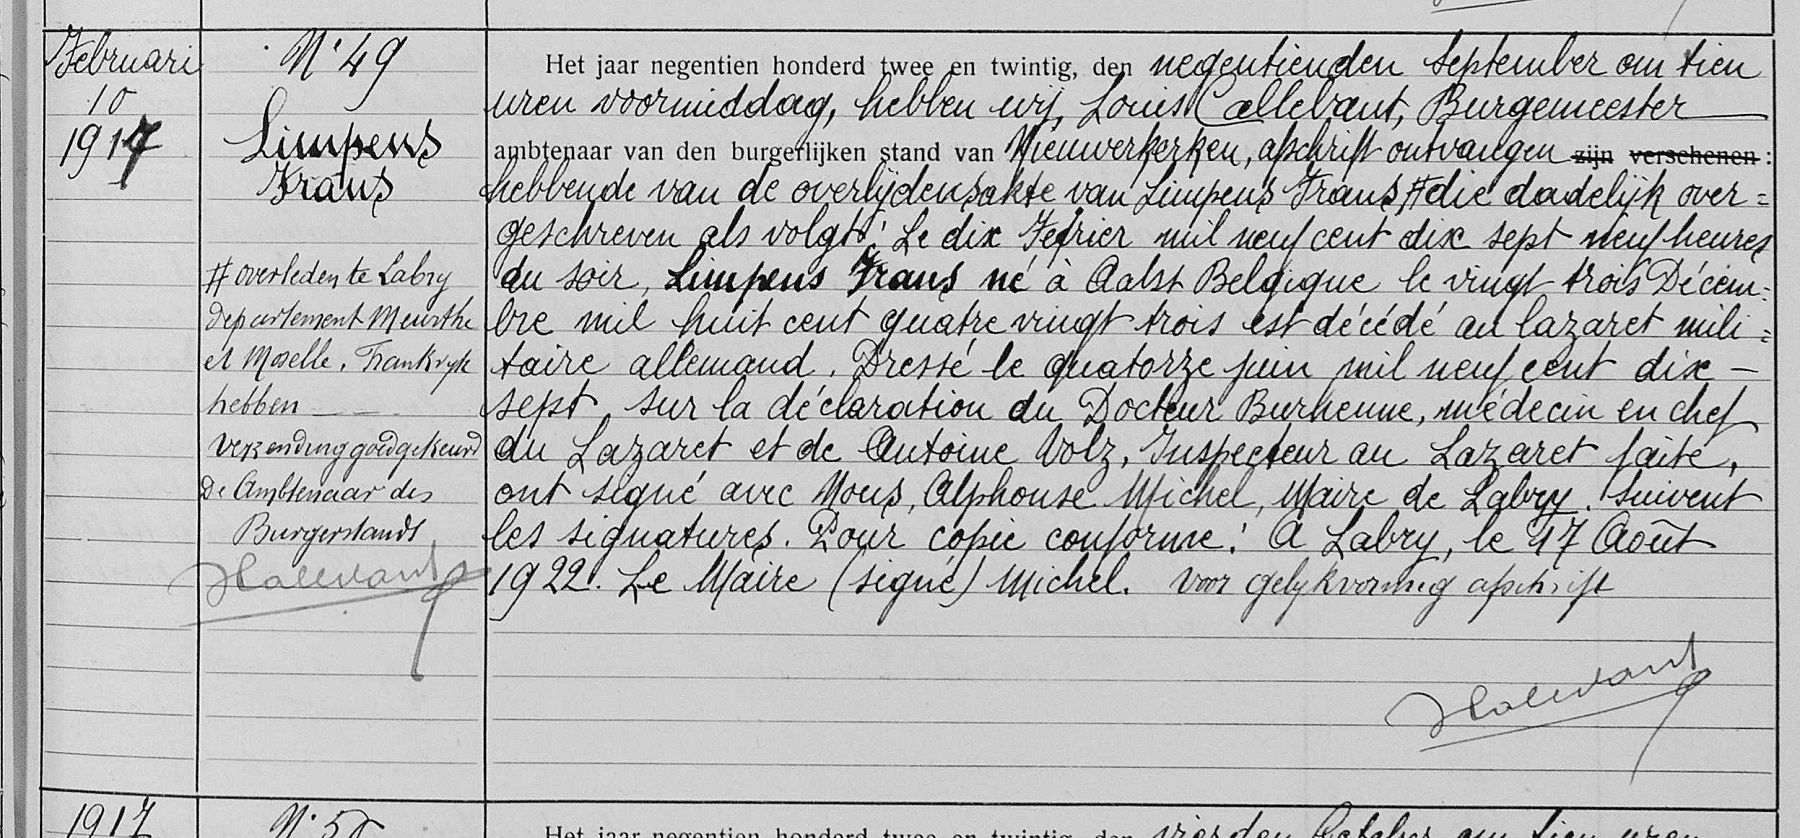 Februari
10
1917
N° 49
Limpens
Frans
# overleden te Labry
departement Meurthe
et Moselle, Frankryk
hebben
Verzending goedgekeurd
De Ambtenaar des
Burgerstands
Het jaar negentien honderd twee en twintig, den negentienden September om tien
uren voormiddag, hebben wij, Louis Callebaut, Burgemeester
ambtenaar van den burgerlijken stand van Nieuwerkerken, afschrift ontvangen zijn verschenen :
hebbende van de overlijdensakte van Limpens Frans, # die dadelijk over=
geschreven als volgt: Le dix Février mil neuf cent dix sept neuf heures
du soir, Limpens Frans né à Aalst Belgique le vingt trois Décem=
bre mil huit cent quatre vingt trois est décédé au lazaret mili=
taire allemand. Dressé le quatorze juin mil neuf cent dix -
sept, sur la déclaration du Docteur Burhenne, médecin en chef
du Lazaret et de Antoine Volz, Inspecteur au Lazaret faite,
ont signé avec Nous, Alphonse Michel, Maire de Labry. Suivent
les signatures. Pour copie conforme: A Labry, le 17 Août
1922. Le Maire (signé) Michel. Voor gelykvormig afschrift
1917
Het jaar negentien honderd twee en twintig, den vierden October om tien uren